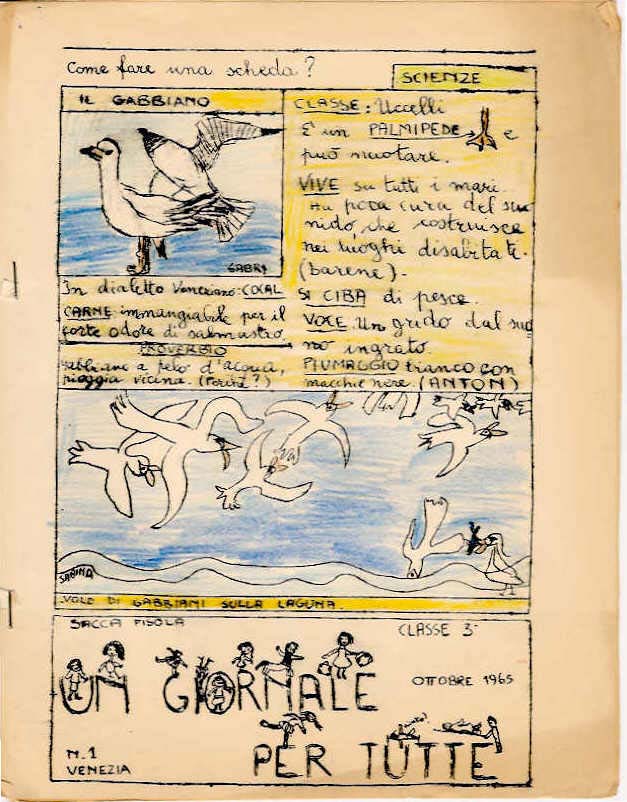 Come fare una scheda?
SCIENZE
IL GABBIANO
GABRI
In dialetto Veneziano: COCAL
CARNE: immangiabile per il
forte odore di salmastro
PROVERBIO
gabbiani a pelo d'acqua,
pioggia vicina. (Perché?)
CLASSE: Uccelli
È un PALMIPEDE → e
può nuotare.
VIVE su tutti i mari.
Ha poca cura del suo
nido, che costruisce
nei luoghi disabitati.
(barene).
SI CIBA di pesce.
VOCE. Un grido dal suo
no ingrato.
PIUMAGGIO bianco con
macchie nere. (ANTON)
SABINA
VOLO DI GABBIANI SULLA LAGUNA.
SACCA FISOLA
CLASSE 3ª
UN GIORNALE
OTTOBRE 1965
PER TUTTE
N. 1
VENEZIA